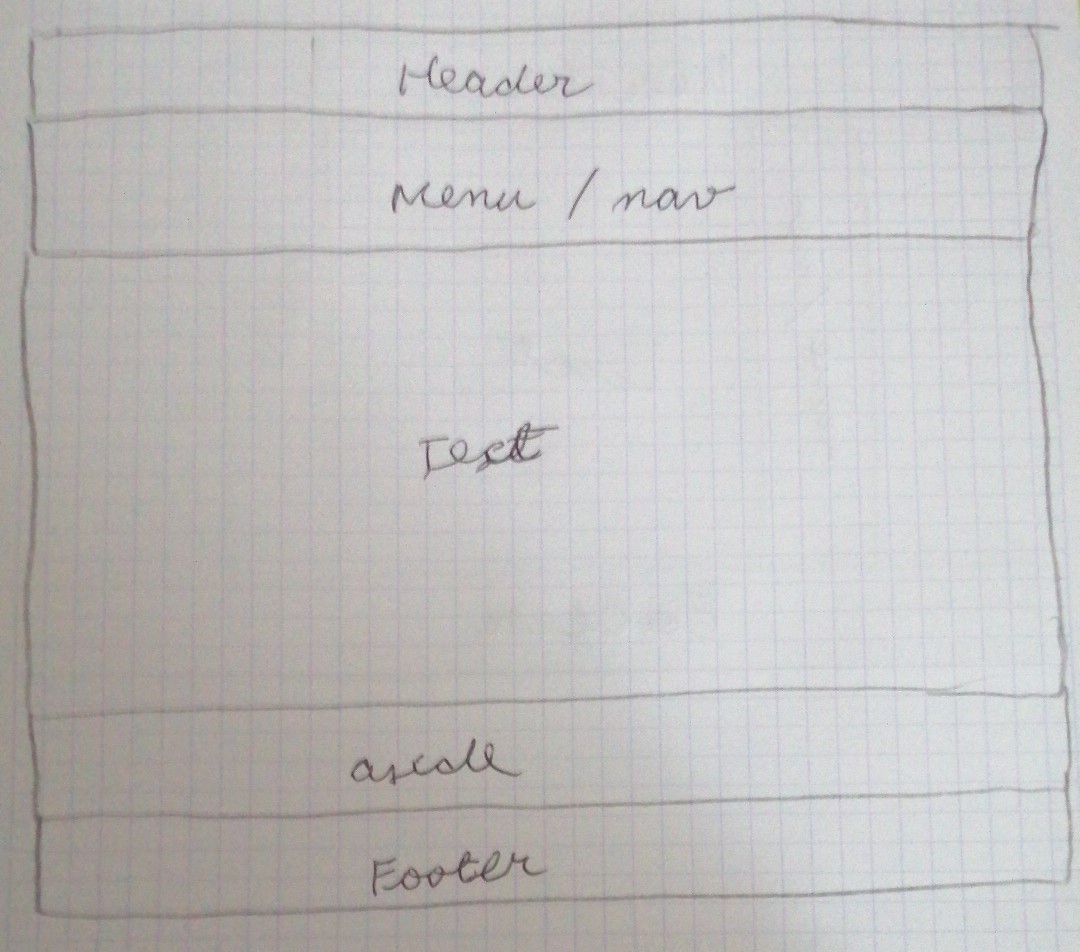 Header
Menu / nav
Text
aside
Footer